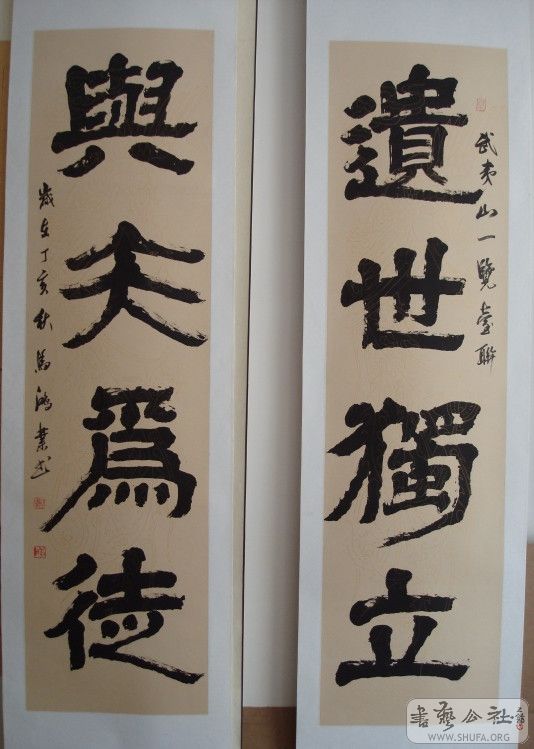 武夷山一覽臺聯
遺世獨立
與天爲徒
歲在丁亥秋馬鴻業書
書藝公社
WWW.SHUFA.ORG